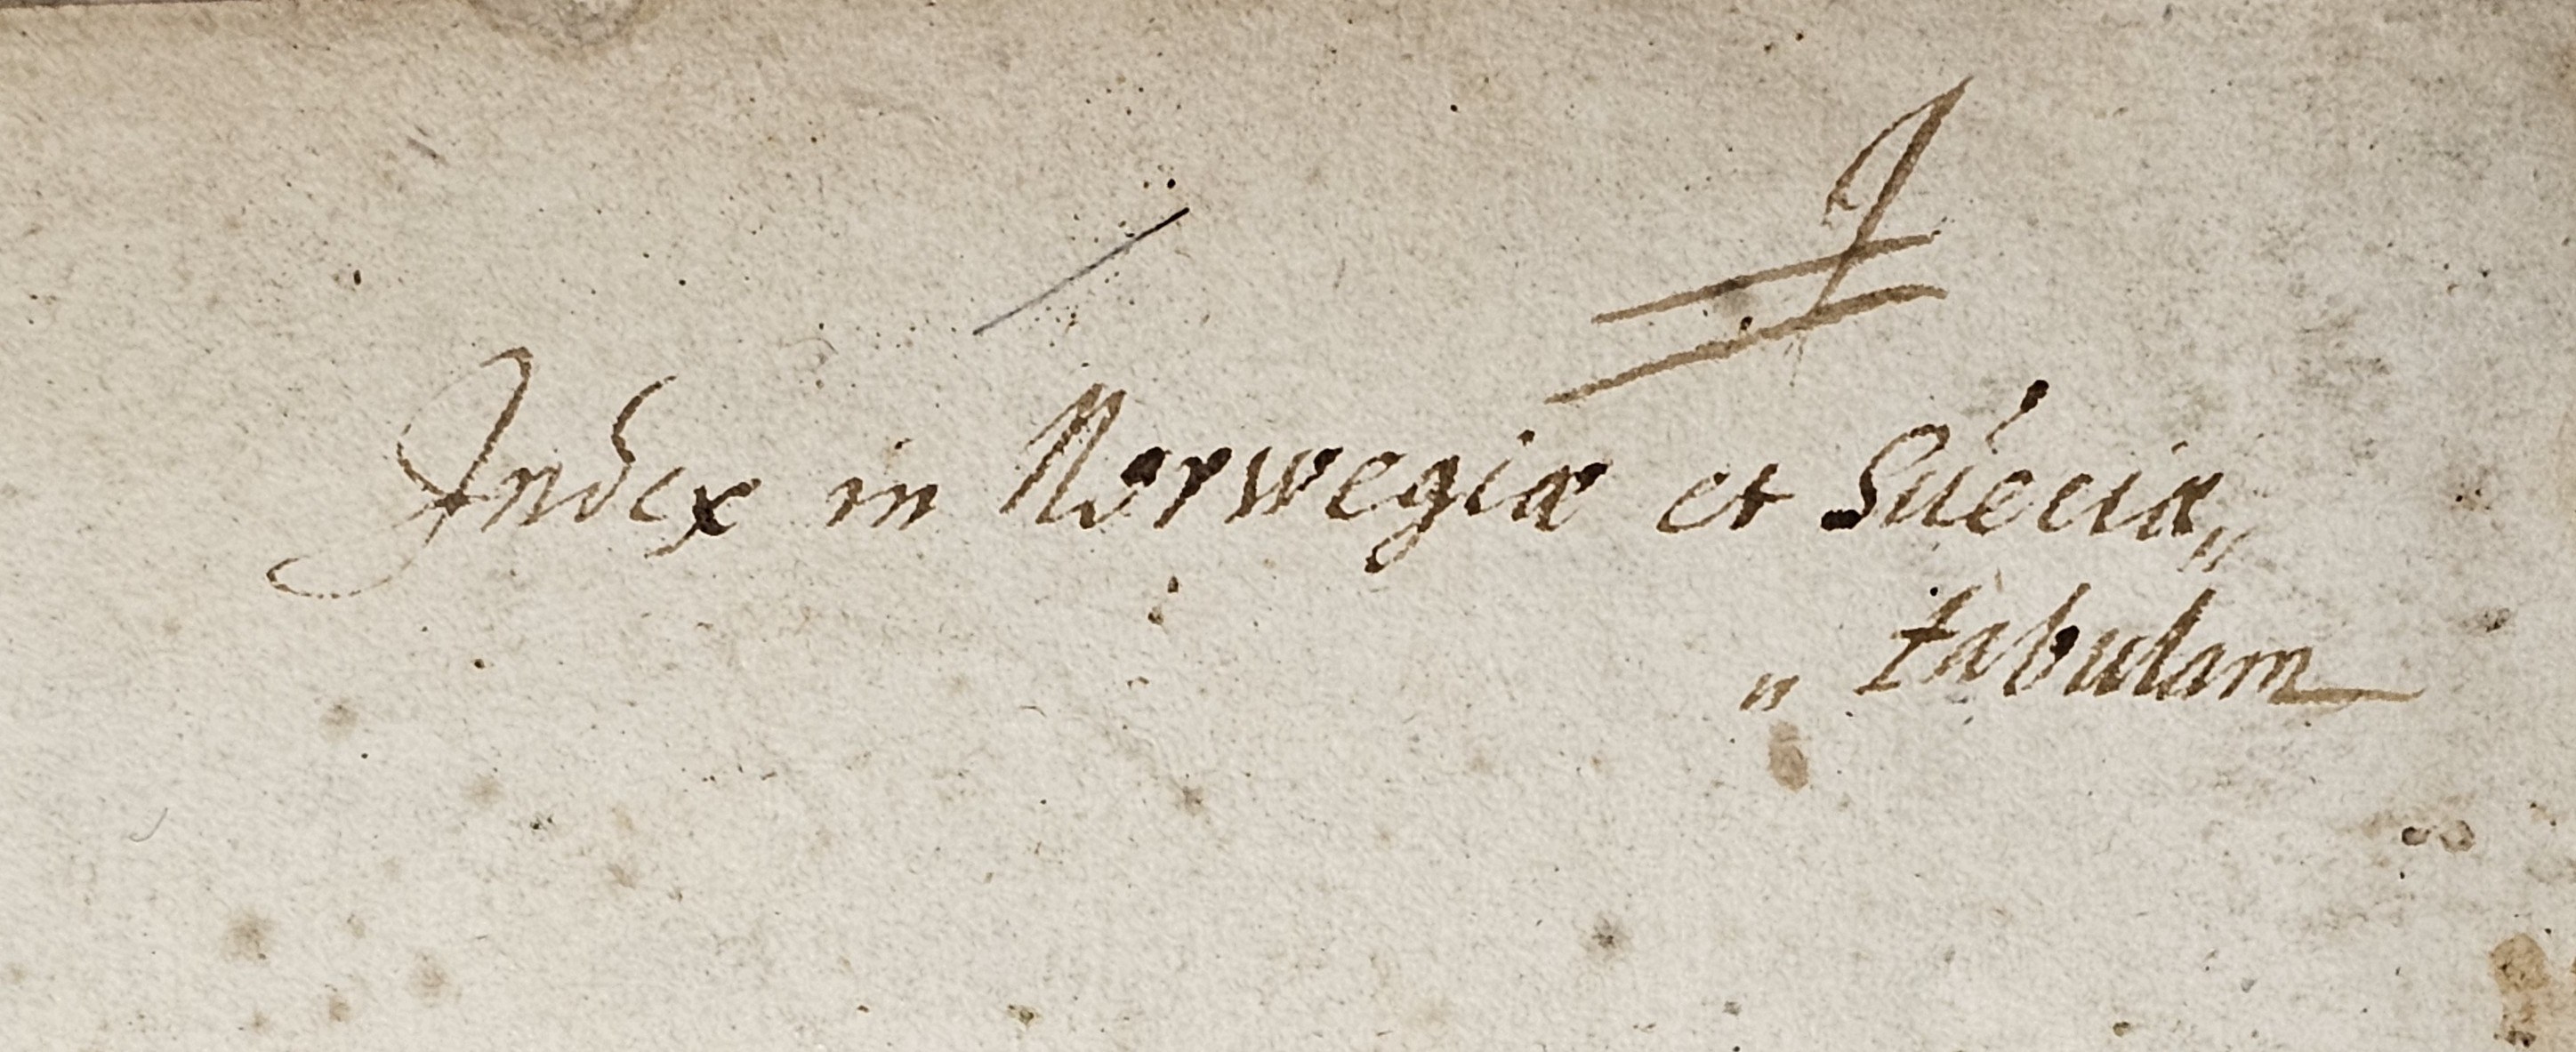 I
Index in Norwegiæ et Sueciæ„
„ tabulam